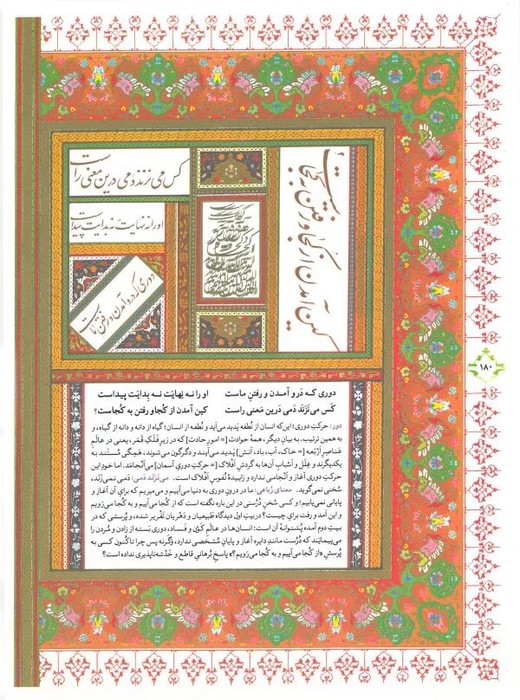 کس می نزند دمی درین معنی راست
او را نه نهایت نه بدایت پیداست
دوری که در او آمدن و رفتن ماست
کین آمدن از کجا و رفتن به کجاست
۱۸۰
دوری که دَرو آمـدن و رفتنِ ماست او را نـه نِهایَت نَـه بِدایَت پیداست
کَس می‌نَزَند دَمی دَرین مَعنی راست کین آمدن از کُجا و رفتن به کُجاست؟
دور: حرکتِ دوری؛ این‌که انسان از نُطفه پَدید می‌آید و نُطفه از انسان؛ گیاه از دانه و دانه از گیاه، و
به همین ترتیب. به بیانِ دیگر، همهٔ حوادث [= امورِ حادث] که در زیرِ فَلَکِ قَمَر، یعنی در عالَمِ
عَناصِرِ أرْبَعه [= خاک، آب، باد، آتش] پدید می‌آیند و دَرْهَم دِگرگون می‌شوند، هَمِگی مُستَند به
یکدیگرند و عِلَل و أسْبابِ آن‌ها به گردشِ أفْلاک [= حرکتِ دَوریِ آسمان] می‌اَنجامَد. اما خودِ این
حرکتِ دَوری آغاز و اَنجامی ندارد و زاییدهٔ نُفوسِ أفْلاک است. می‌نَزَنَد دَمی: دَمی نمی‌زَنَد،
سُخنی نمی‌گوید. معنایِ رُباعی: ما در درونِ دوری به دنیا می‌آییم و می‌میریم که برای آن آغاز و
پایانی نمی‌یابیم؛ و کسی سُخنِ دُرُستی در این باره نگفته است که از کُجا می‌آییم و به کُجا می‌رَویم
و این آمد و رفت برای چیست؟ در بیتِ اول دیدگاهِ طَبیعیان و دَهْریان تَقْریر شده، و پُرسشی که در
بیتِ دوم آمده پُشتوانهٔ آن است: انسان‌ها در عالَمِ کَوْن و فَساد، دوری بَسته از زادن و مُردن را
می‌پیمایَند که دُرُست مانندِ دایره آغاز و پایانِ مُشَخَّصی ندارد، وَگرنه پس چرا تاکُنون کسی به
پُرسشِ «از کُجا می‌آییم و به کُجا می‌رَویم؟» پاسخِ بُرهانیِ قاطِع و خَدْشه‌ناپذیری نداده است؟